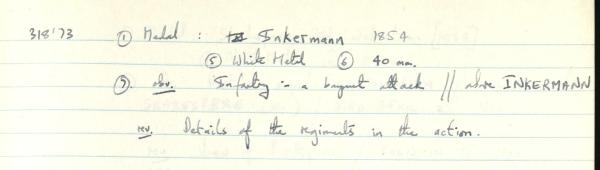 318'73 ① Medal : Inkermann 1854
⑤ White Metal ⑥ 40 mm.
⑦. obv. Infantry in a bayonet attack // above INKERMANN
rev. Details of the regiments in the action.